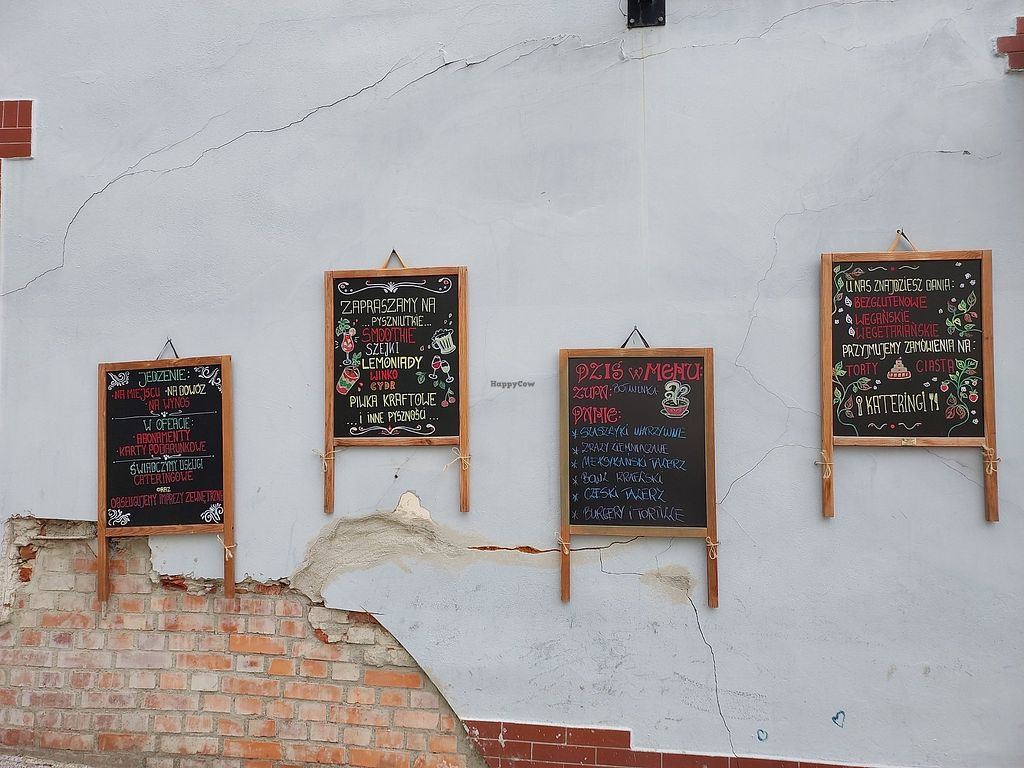 JEDZENIE:
·NA MIEJSCU ·NA DOWÓZ
·NA WYNOS
W OFERCIE:
·ABONAMENTY
·KARTY PODARUNKOWE
ŚWIADCZYMY USŁUGI
CATERINGOWE
ORAZ
OBSŁUGUJEMY IMPREZY ZEWNĘTRZNE
ZAPRASZAMY NA
...PYSZNIUTKIE...
SMOOTHIE
SZEJKI
LEMONIADY
WINKO
CYDR
PIWKA KRAFTOWE
...I INNE PYSZNOŚCI...
HappyCow
DZIŚ W MENU:
ZUPA:
DANIE:
* SZASZŁYKI WARZYWNE
* ZRAZY ZIEMNIACZANE
* MEKSYKAŃSKI TALERZ
* BOWL
* CZESKI TALERZ
* BURGERY I TORTILLE
U NAS ZNAJDZIESZ DANIA:
BEZGLUTENOWE
WEGAŃSKIE
WEGETARIAŃSKIE
PRZYJMUJEMY ZAMÓWIENIA NA:
TORTY CIASTA
KATERINGI